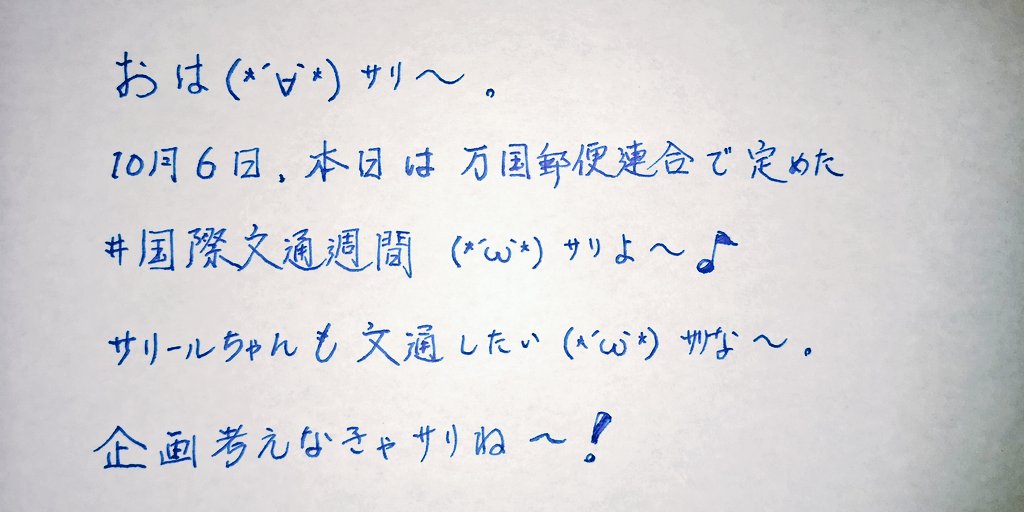 おは(*´∀`*)サリ〜。
10月6日、本日は万国郵便連合で定めた
#国際文通週間 (*´ω`*)サリよ〜♪
サリールちゃんも文通したい(*´ω`*)サリな〜。
企画考えなきゃサリね〜!